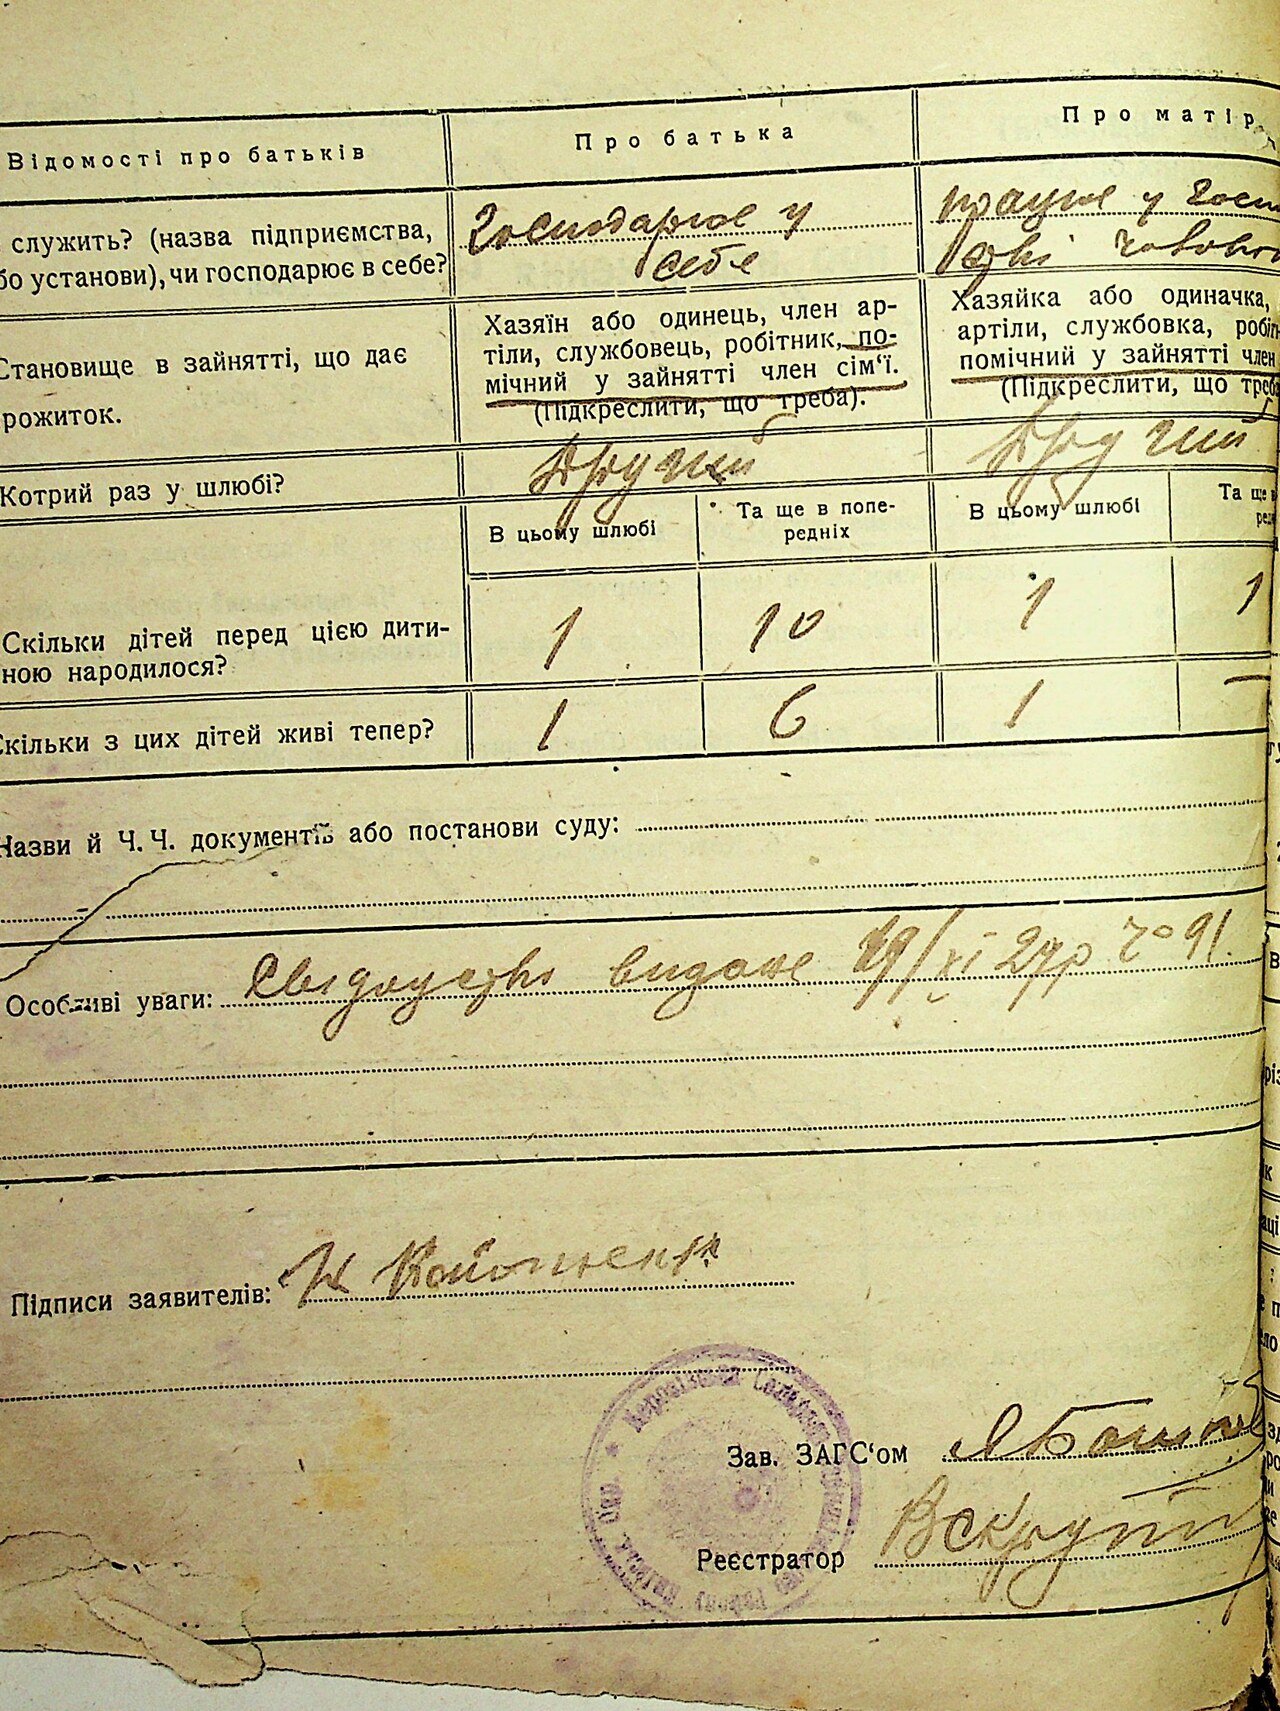 Відомості про батьків
Про батька
Про матір
служить? (назва підприємства,
бо установи), чи господарює в себе?
Господарює у
себе
працює у
Становище в зайнятті, що дає
рожиток.
Хазяїн або одинець, член ар-
тіли, службовець, робітник, по-
мічний у зайнятті член сім'ї.
(Підкреслити, що треба).
Хазяйка або одиначка,
артіли, службовка, робіт
помічний у зайнятті член
(Підкреслити, що треба
Котрий раз у шлюбі?
Другий
Другий
В цьому шлюбі
Та ще в попе-
редніх
В цьому шлюбі
Та ще в
ред
Скільки дітей перед цією дити-
ною народилося?
1
10
1
1
Скільки з цих дітей живі тепер?
1
6
1
–
Назви й Ч. Ч. документів або постанови суду:
Особливі уваги: видане 19/XI 27р 91.
Підписи заявителів:
Зав. ЗАГС'ом
Реєстратор